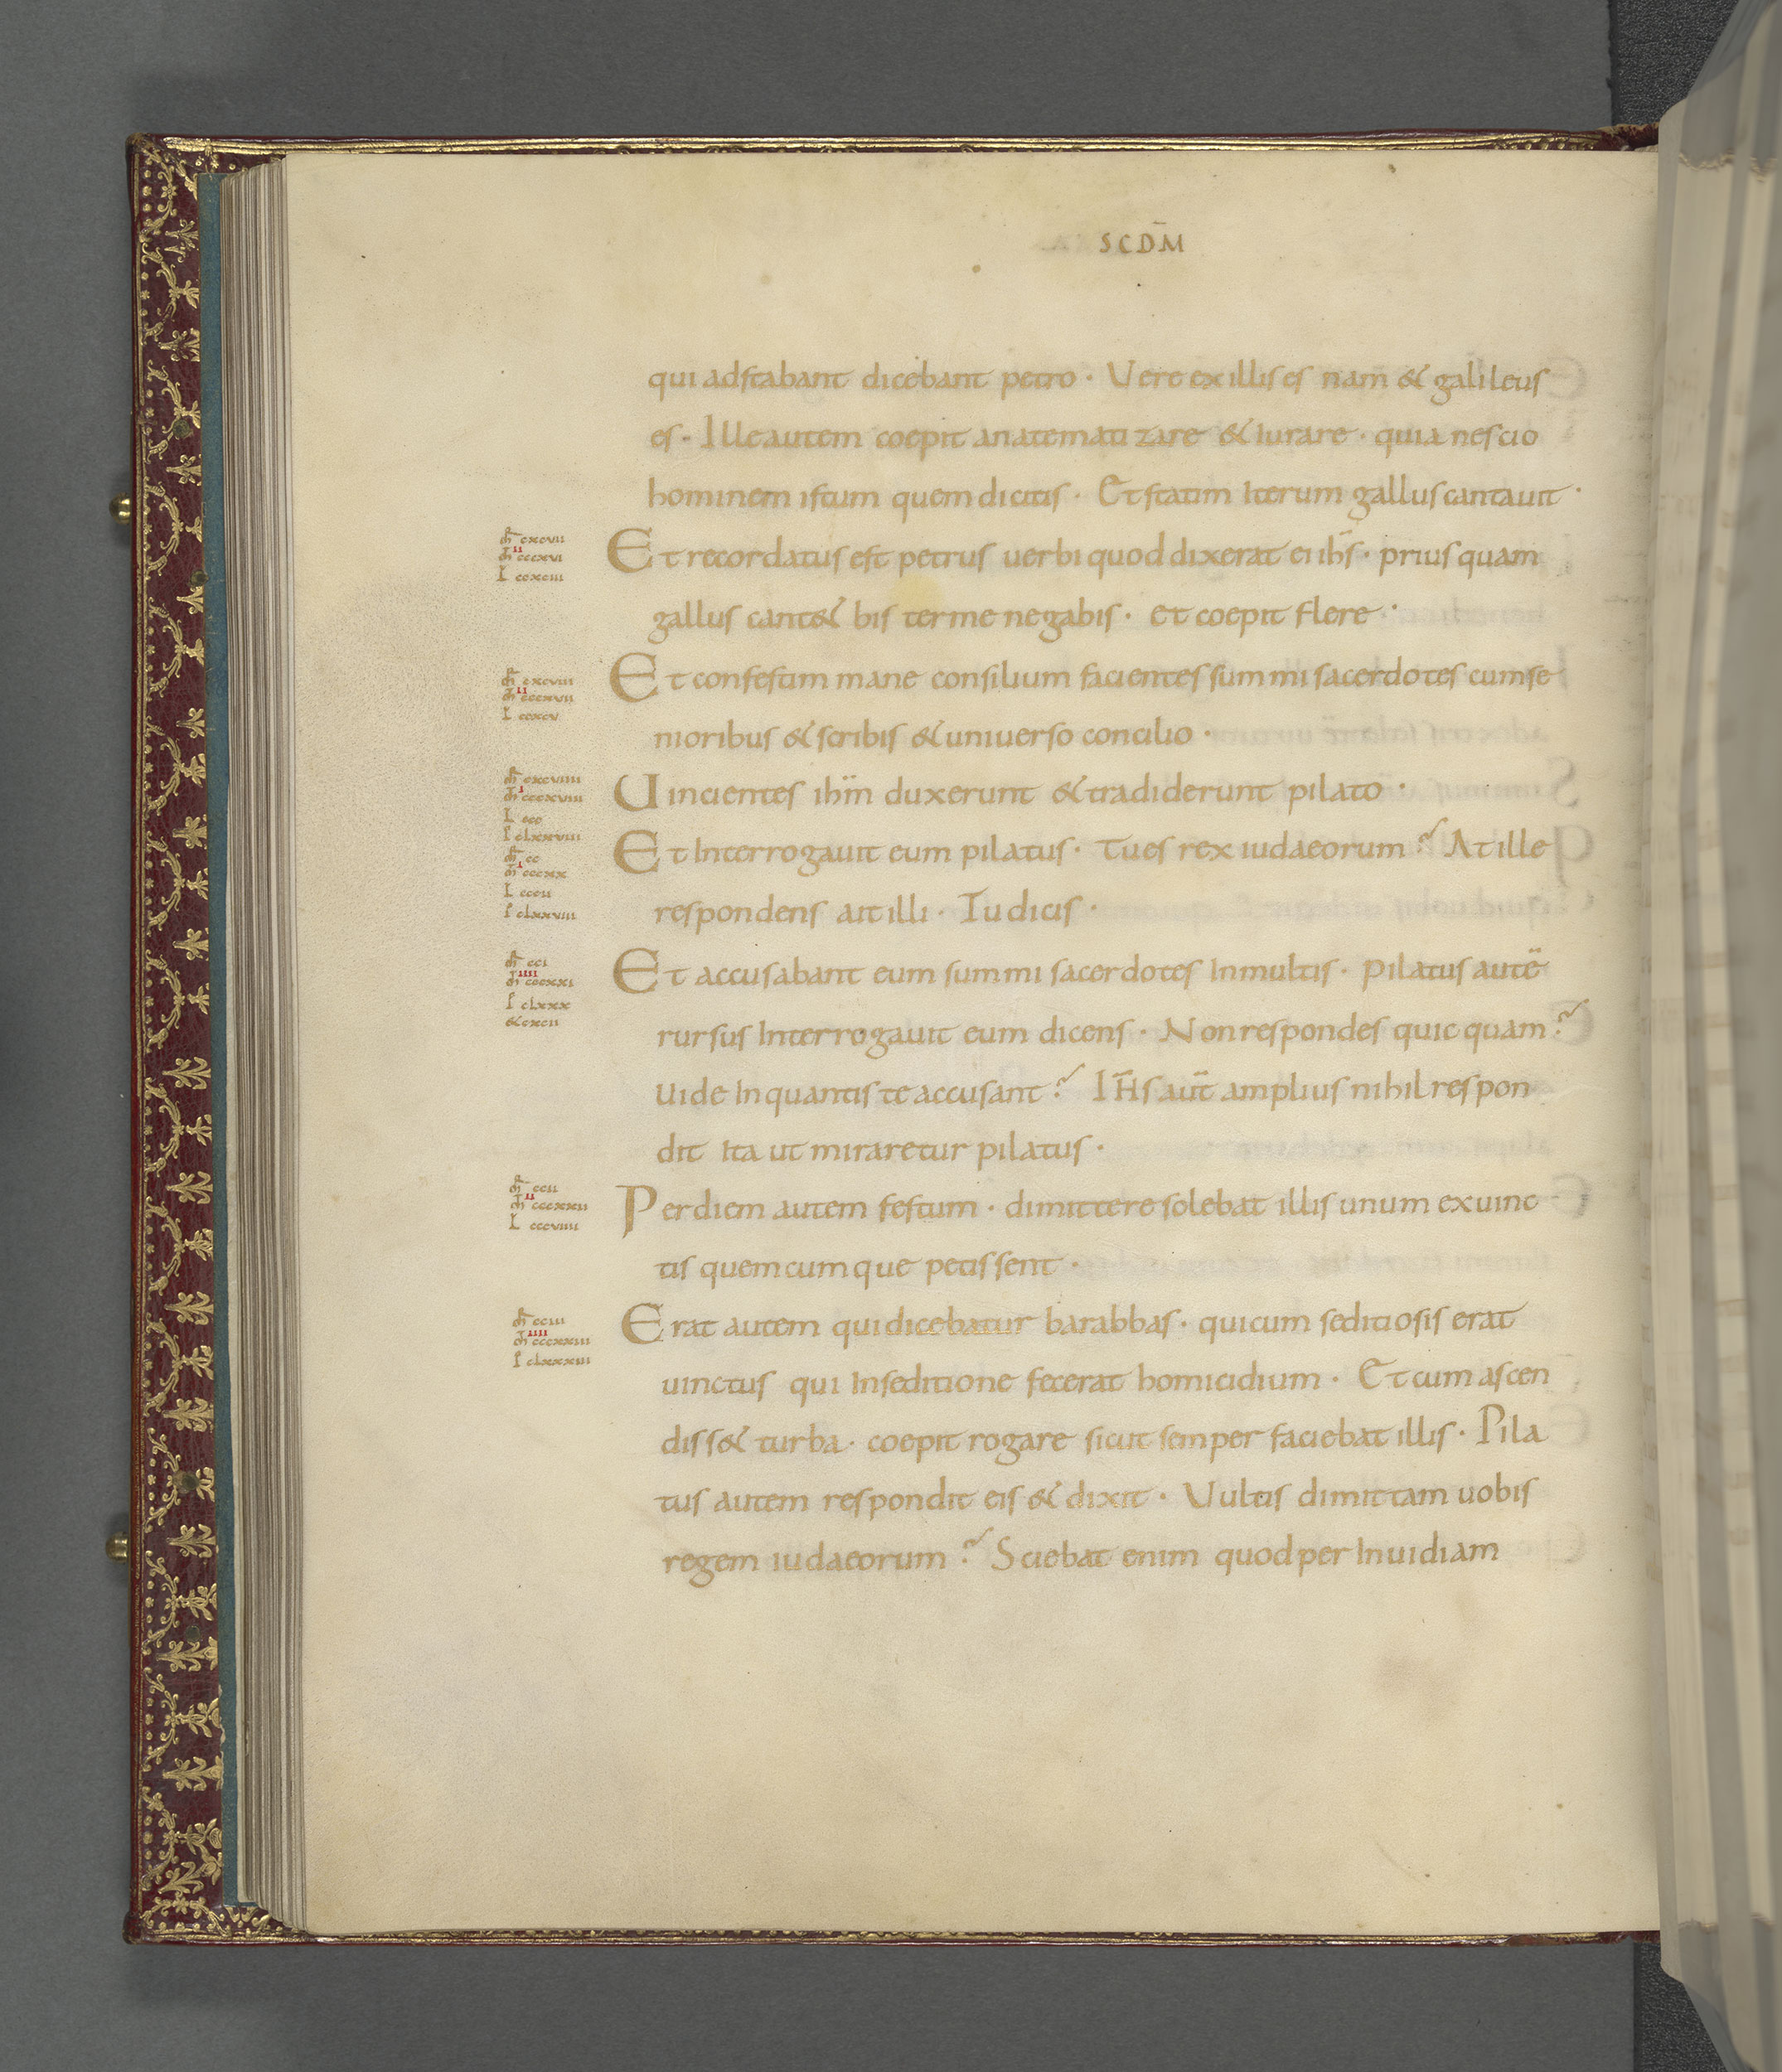 SCDM̄
qui adstabant dicebant petro · Vere ex illis es nam & galileus
es · Ille autem coepit anatematizare & iurare · quia nescio
hominem istum quem dicitis · Et statim iterum gallus cantauit ·
mr̄ cxcvii
m̄ ii cccxvi
L ccxciii
Et recordatus est petrus uerbi quod dixerat ei ih̄s · prius quam
gallus cant& bis ter me negabis · et coepit flere ·
mr̄ cxcviii
m̄ ii cccxvii
L ccxcv
Et confestim mane consilium facientes summi sacerdotes cum se
nioribus & scribis & uniuerso concilio ·
mr̄ cxcviiii
m̄ i cccxviii
L ccc
I clxxviii
Uincientes ih̄m duxerunt & tradiderunt pilato ·
mr̄ cc
m̄ i cccxx
L cccii
I clxxviii
Et Interrogauit eum pilatus · Tu es rex iudaeorum ? At ille
respondens ait illi · Tu dicis ·
mr̄ cci
m̄ iiii cccxxi
I clxxx
& cxcii
Et accusabant eum summi sacerdotes In multis · pilatus autē
rursus Interrogauit eum dicens · Non respondes quicquam ?
Uide In quantis te accusant ? IH̄S aut̄ amplius nihil respon
dit ita ut miraretur pilatus ·
mr̄ ccii
m̄ ii cccxxii
L cccviiii
Per diem autem festum · dimittere solebat illis unum ex uinc
tis quemcumque petissent ·
mr̄ cciii
m̄ iiii cccxxiii
I clxxxiii
Erat autem qui dicebatur barabbas · qui cum seditiosis erat
uinctus qui In seditione fecerat homicidium · Et cum ascen
diss& turba · coepit rogare sicut semper faciebat illis · Pila
tus autem respondit eis & dixit · Vultis dimittam uobis
regem iudaeorum ? Sciebat enim quod per Inuidiam